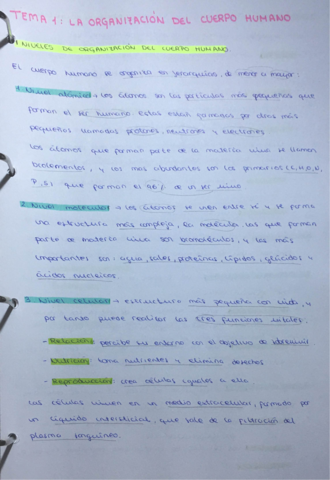 TEMA 1: LA ORGANIZACIÓN DEL CUERPO HUMANO
1. NIVELES DE ORGANIZACIÓN DEL CUERPO HUMANO
El cuerpo humano se organiza en jerarquías, de menor a mayor:
1. Nivel atómico → los átomos son las partículas más pequeñas que
forman el ser humano. Estos están formados por otras más
pequeñas llamadas protones, neutrones y electrones
Los átomos que forman parte de la materia viva se llaman
bioelementos, y los más abundantes son los primarios (C, H, O, N,
P, S), que forman el 96% de un ser vivo
2. Nivel molecular → los átomos se unen entre sí y se forma
una estructura más compleja, la molécula. Las que forman
parte de materia viva son biomoléculas, y las más
importantes son: agua, sales, proteínas, lípidos, glúcidos y
ácidos nucleicos.
3. Nivel celular → estructura más pequeña con vida, y
por tanto puede realizar las tres funciones vitales:
- Relación: percibe su entorno con el objetivo de
- Nutrición: toma nutrientes y elimina desechos
- Reproducción: crea células iguales a ella
Las células viven en un medio extracelular, formado por
un líquido intersticial, que sale de la filtración del
plasma sanguíneo.